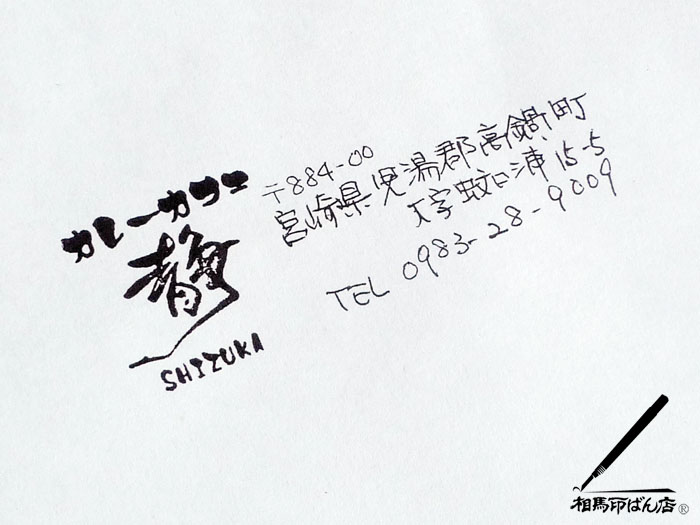 カレーカフェ
静
SHIZUKA
〒884-00
宮崎県児湯郡高鍋町
大字蚊口浦15-5
TEL 0983-28-9009
相馬印ばん店®